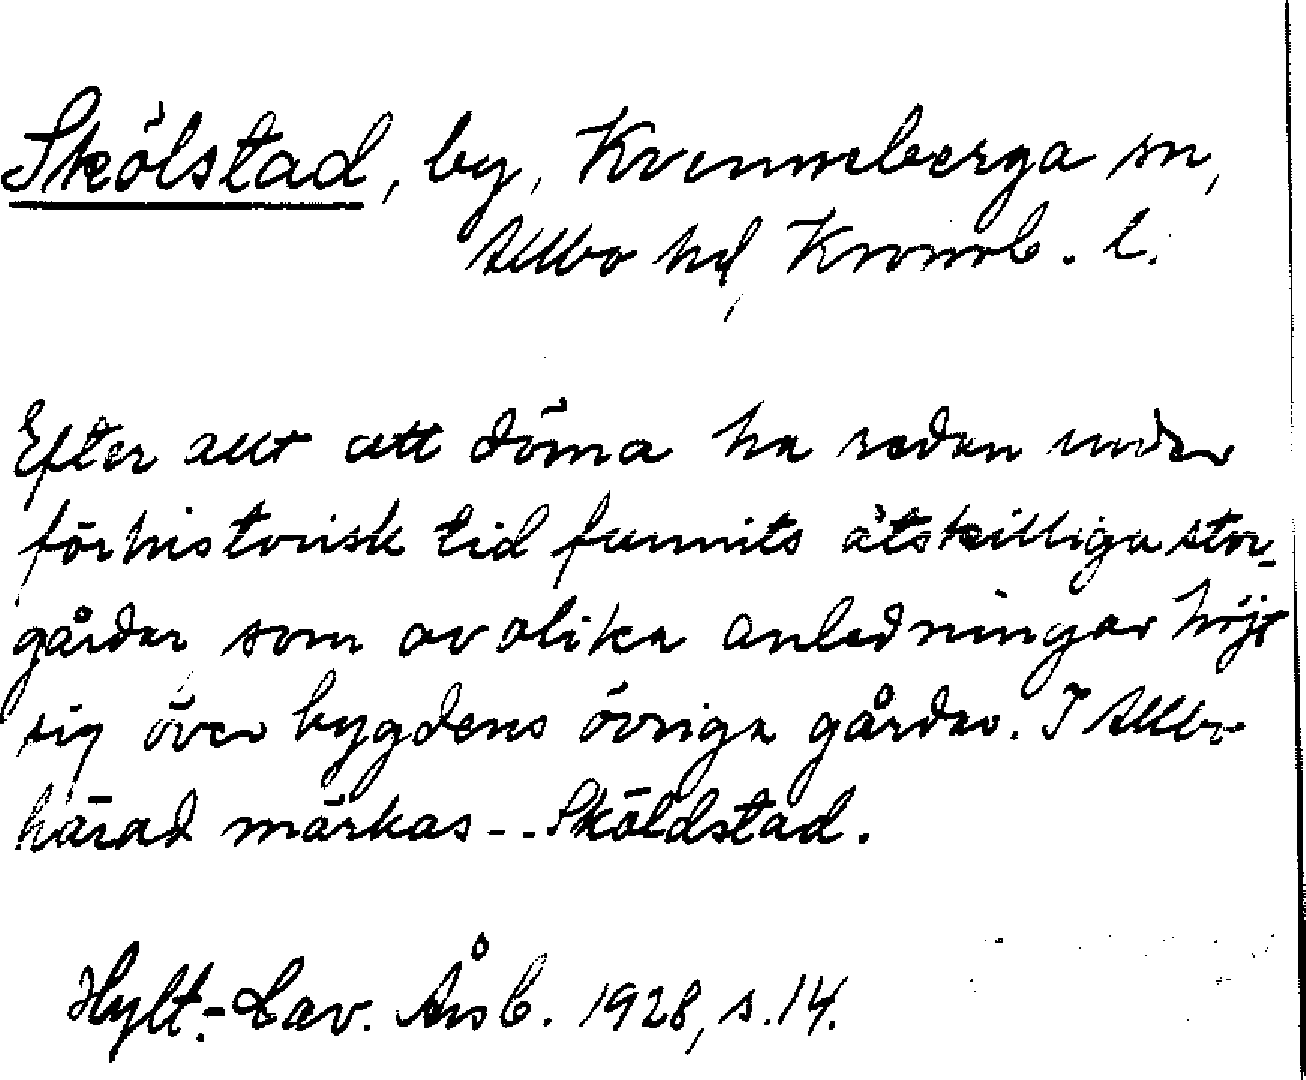 Skölstad, by, Kvenneberga sn,
Allbo hd, Kronob. l.
Efter allt att döma ha redan under
förhistorisk tid funnits åtskilliga stor-
gårdar som av olika anledningar höjt
sig över bygdens övriga gårdar. I Allbo
härad märkas -- Sköldstad.
Hylt.-Cav. Årsb. 1928, s. 14.